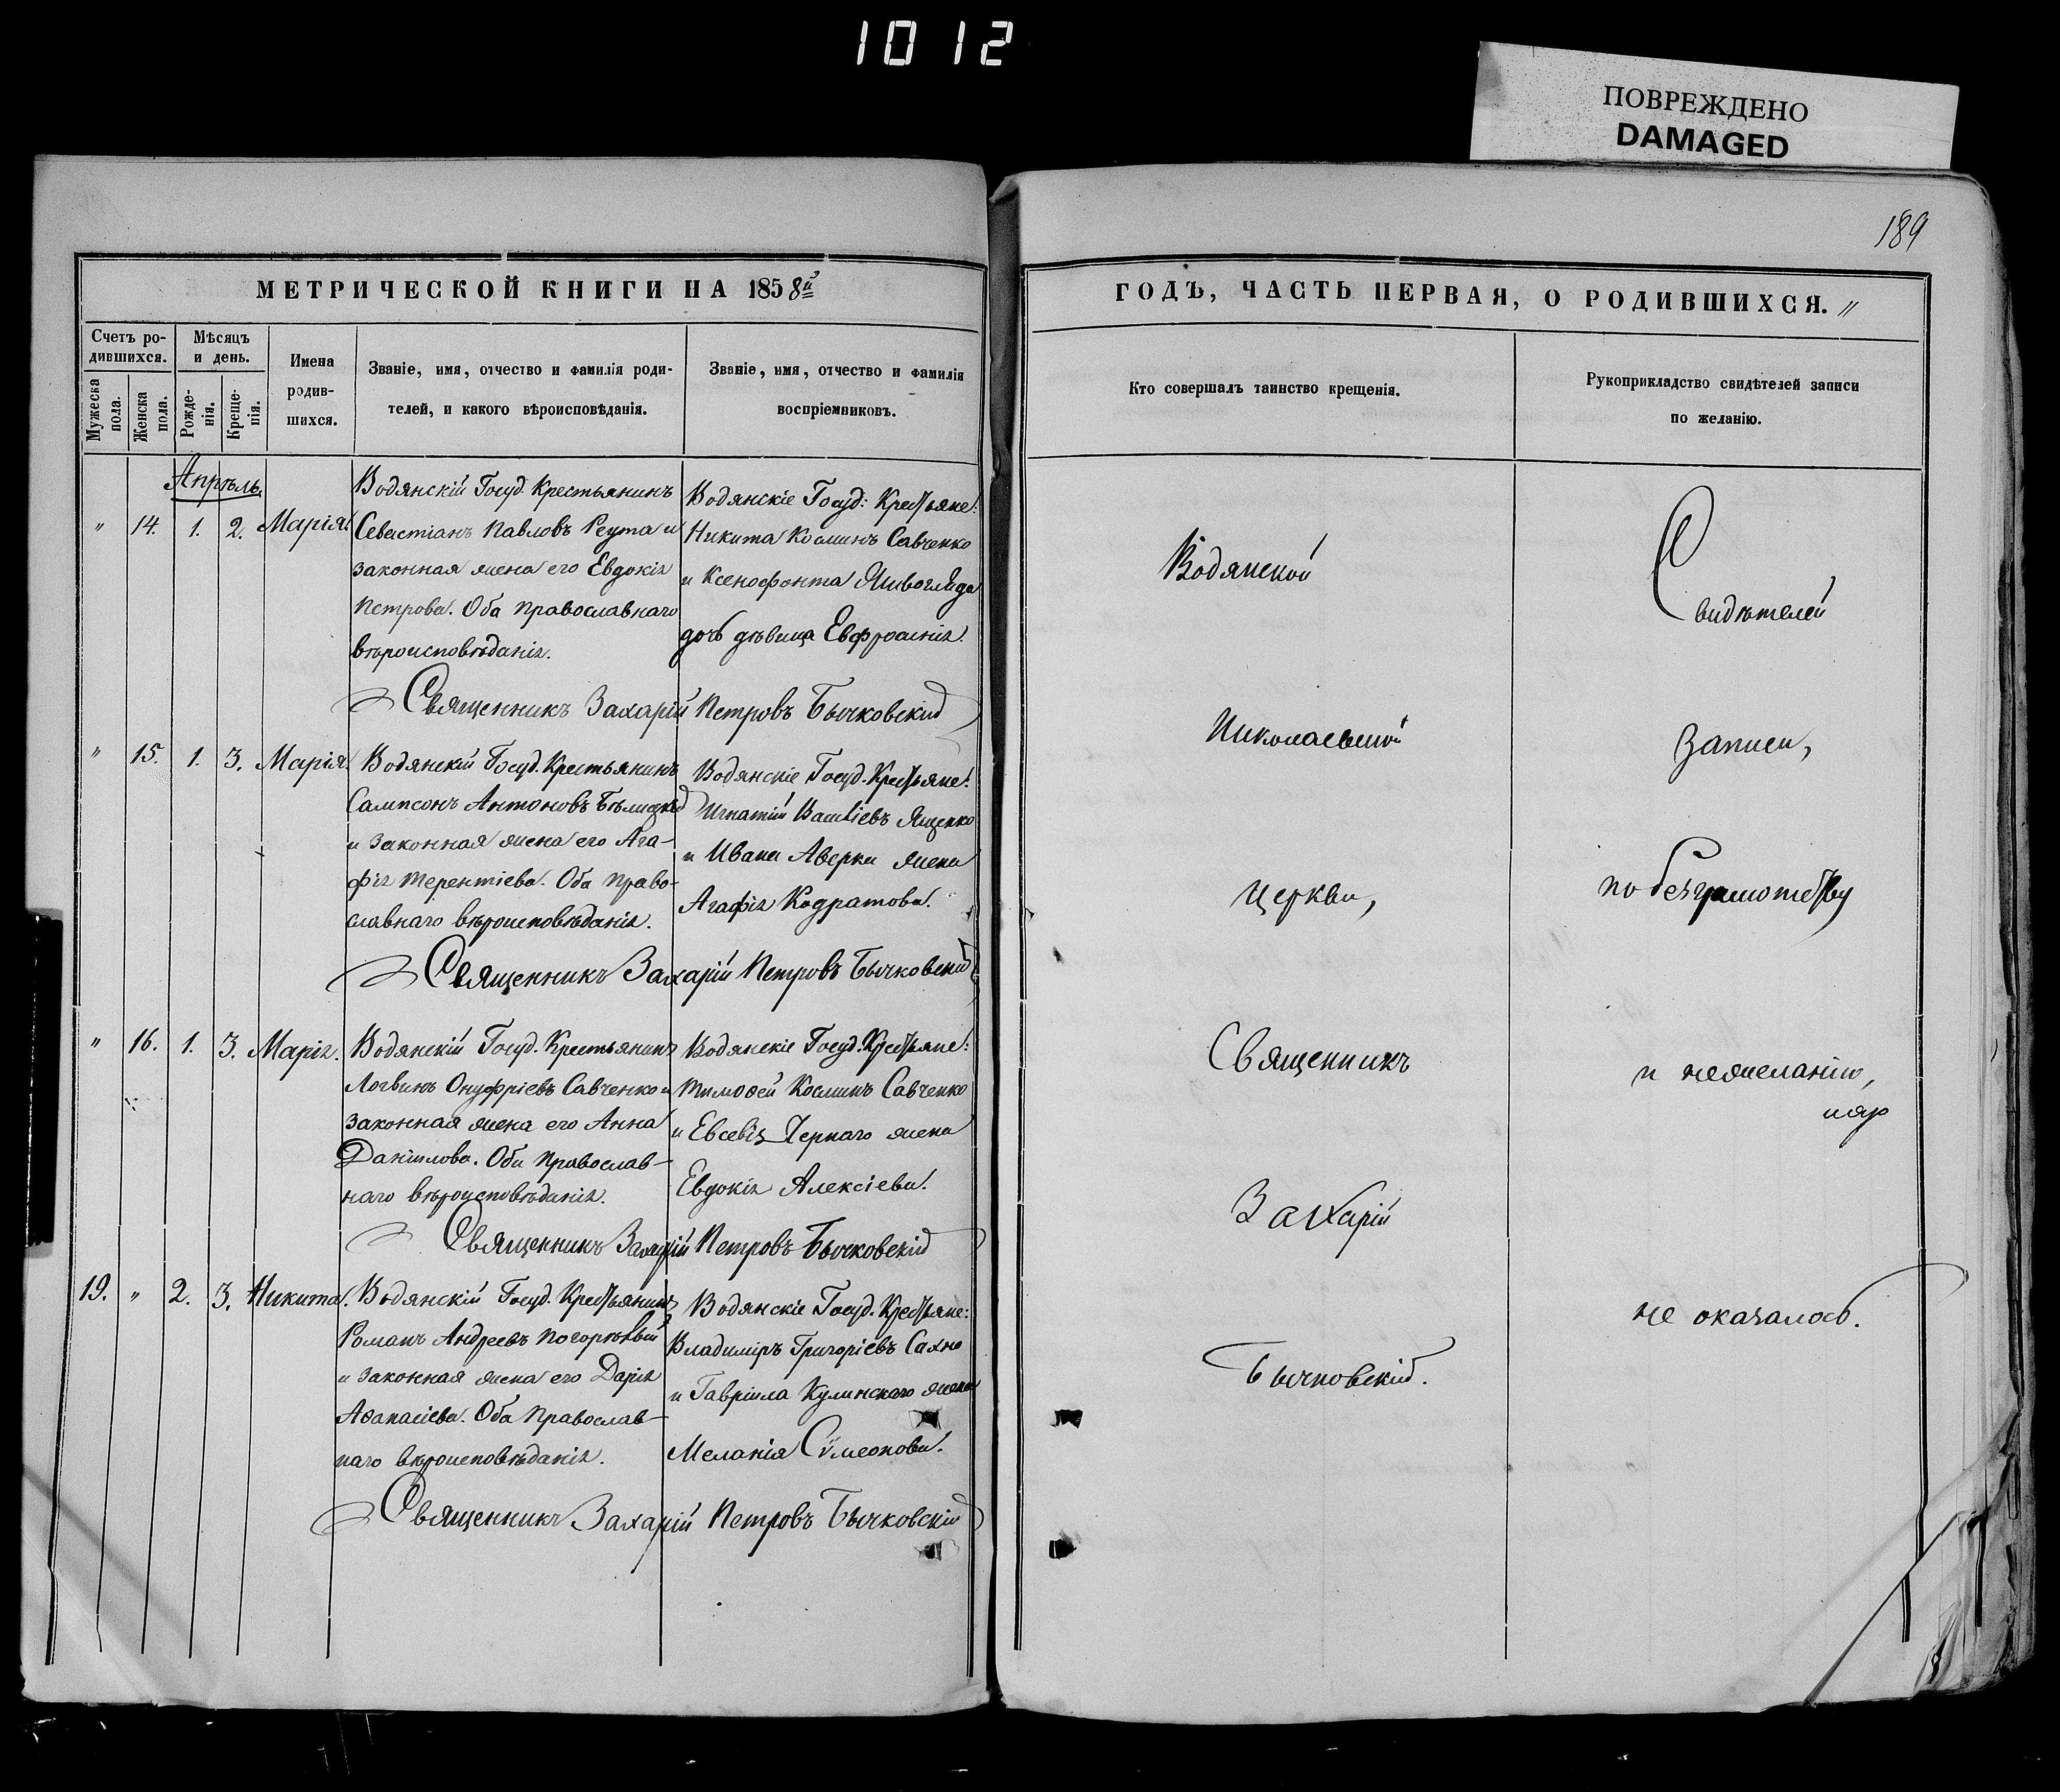 1012
ПОВРЕЖДЕНО
DAMAGED
189
МЕТРИЧЕСКОЙ КНИГИ НА 1858й
Счетъ ро-
дившихся.
Мужеска
пола.
Женска
пола.
Мѣсяцъ
и день.
Рожде-
нія.
Креще-
нія.
Имена
родив-
шихся.
Званіе, имя, отчество и фамилія роди-
телей, и какого вѣроисповѣданія.
Званіе, имя, отчество и фамилія
воспріемниковъ.
Апрѣль.
" 14. 1. 2. Марія.
Водянскій Госуд. Крестьянинъ
Севастіанъ Павловъ Реута и
законная жена его Евдокія
Петрова. Оба православнаго
вѣроисповѣданія.
Водянскіе Госуд: Крестьяне:
Никита Косминъ Савченко
и Ксенофонта Живогляда
дочь дѣвица Евфросинія.
Священникъ Захарій Петровъ Бычковскій
" 15. 1. 3. Марія.
Водянскій Госуд. Крестьянинъ
Сампсонъ Антоновъ Бѣлицкій
и законная жена его Ага-
фія Терентіева. Оба право-
славнаго вѣроисповѣданія.
Водянскіе Госуд. Крестьяне:
Игнатій Ященко
и Ивана Аверки жена
Агафія Кодратова.
Священникъ Захарій Петровъ Бычковскій
" 16. 1. 3. Марія.
Водянскій Госуд. Крестьянинъ
Логвинъ Онуфріевъ Савченко и
законная жена его Анна
Даніилова. Оба православ-
наго вѣроисповѣданія.
Водянскіе Госуд. Крестьяне:
Тимоѳей Косминъ Савченко
и Евсевія Чернаго жена
Евдокія Алексіева.
Священникъ Захарій Петровъ Бычковскій
19. " 2. 3. Никита.
Водянскій Госуд. Крестьянинъ
Романъ Андреевъ Погорѣлый
и законная жена его Дарія
Аѳанасіева. Оба православ-
наго вѣроисповѣданія.
Водянскіе Госуд. Крестьяне:
Владиміръ Григоріевъ Сахно
и Гавріила Кулинскаго жена
Меланія Сѵмеонова.
Священникъ Захарій Петровъ Бычковскій
ГОДЪ, ЧАСТЬ ПЕРВАЯ, О РОДИВШИХСЯ. "
Кто совершалъ таинство крещенія.
Рукоприкладство свидѣтелей записи
по желанію.
Водянской
Николаевской
Церкви,
Священникъ
Захарій
Бычковскій.
Свидѣтелей
Записи,
по безграмотству
и нежеланію,
не оказалось.